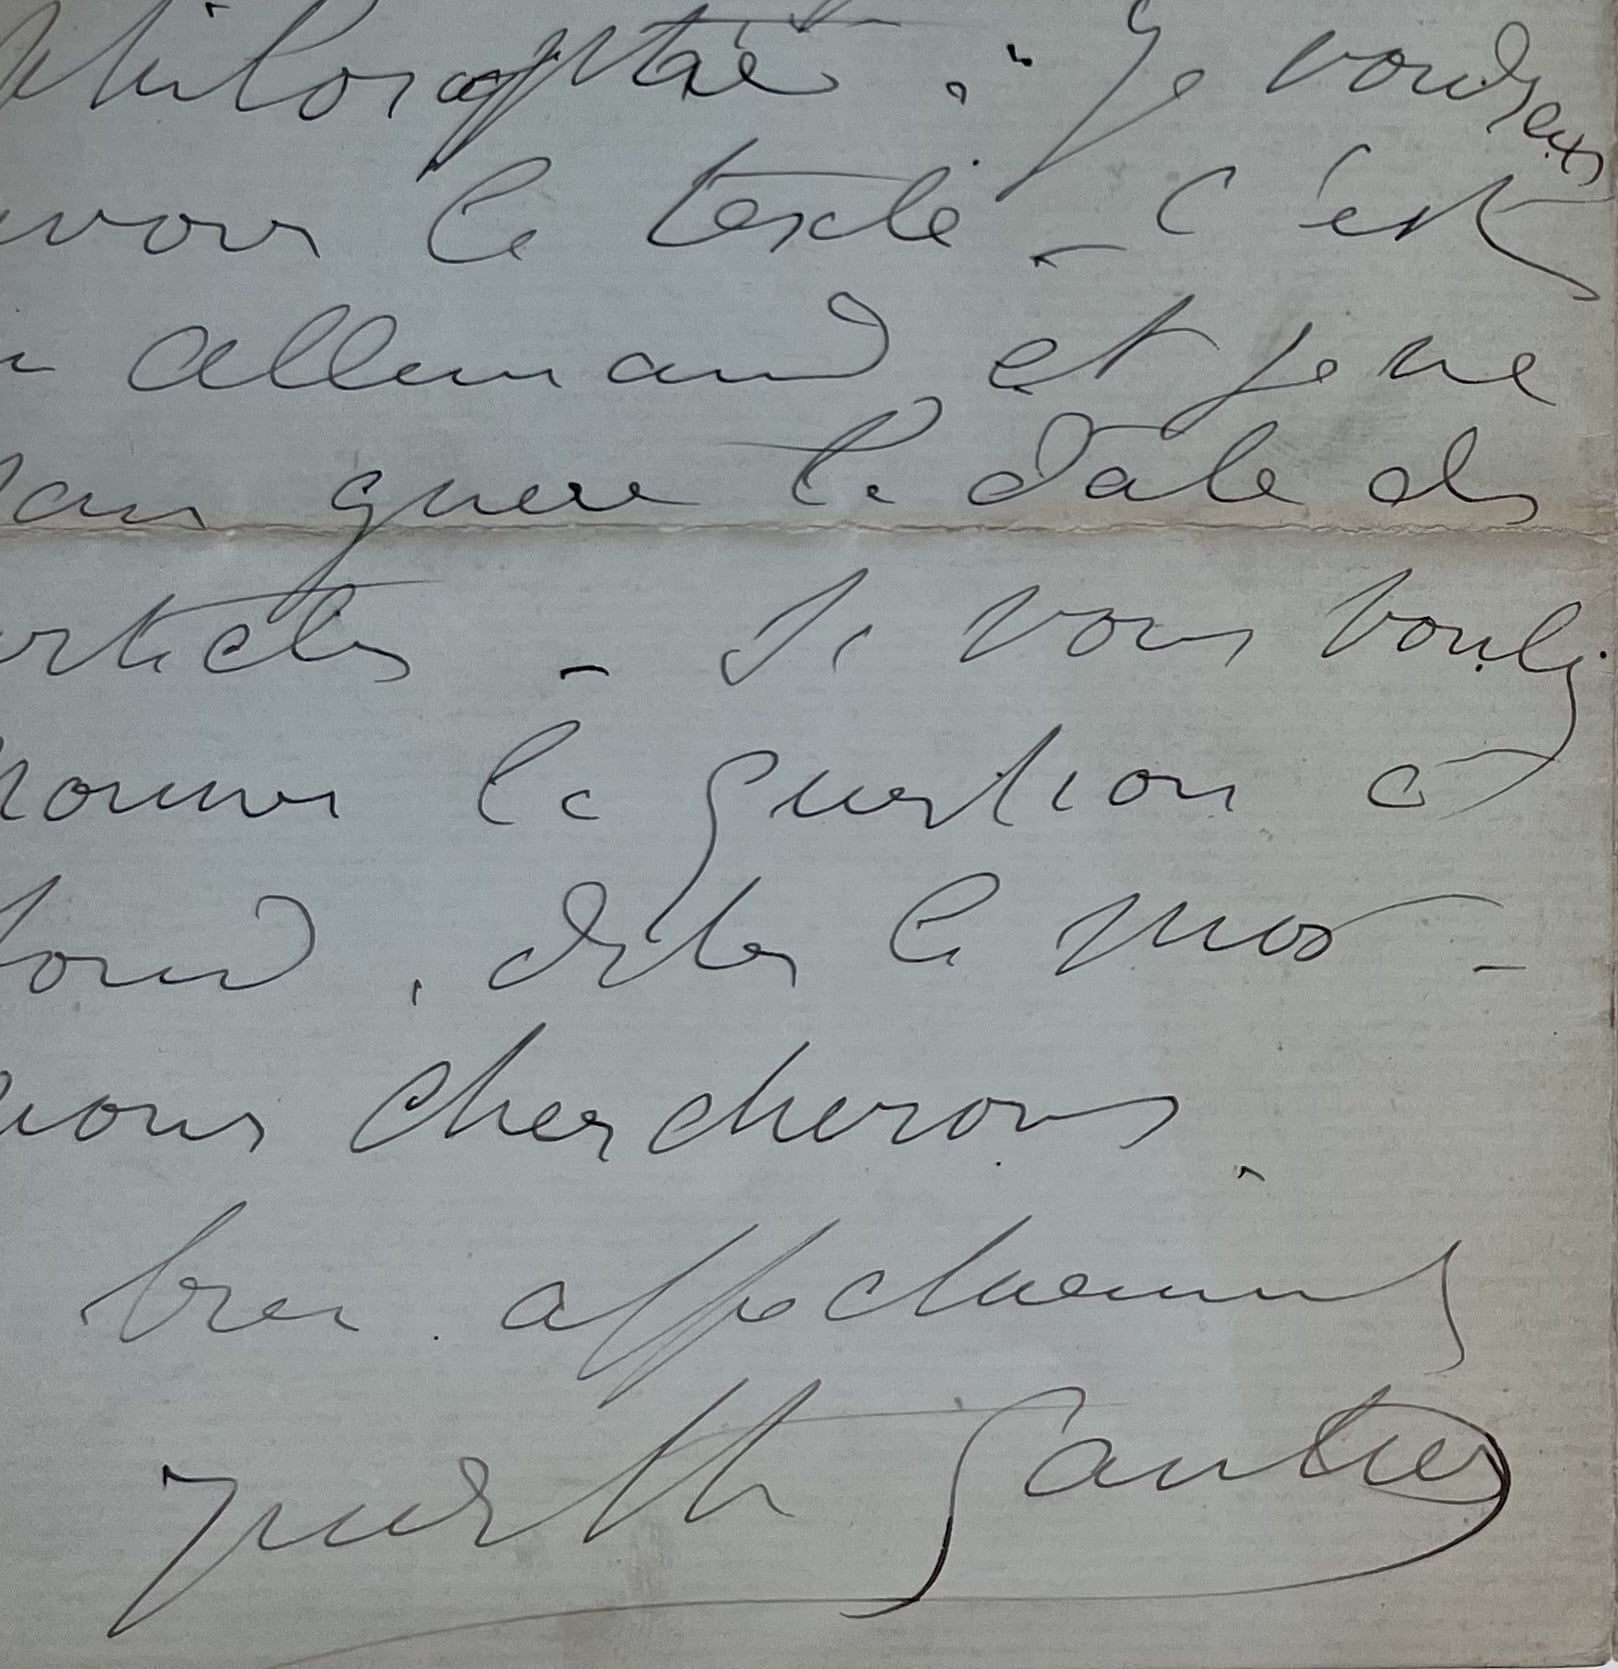 philosophie : Je voudrais
avoir le texte - c'est
allemand et je ne
sais guere la date des
articles - Si vous voulez
la question à
fond, dites le moi -
nous chercherons.
bien affectueusement
Judith Gautier